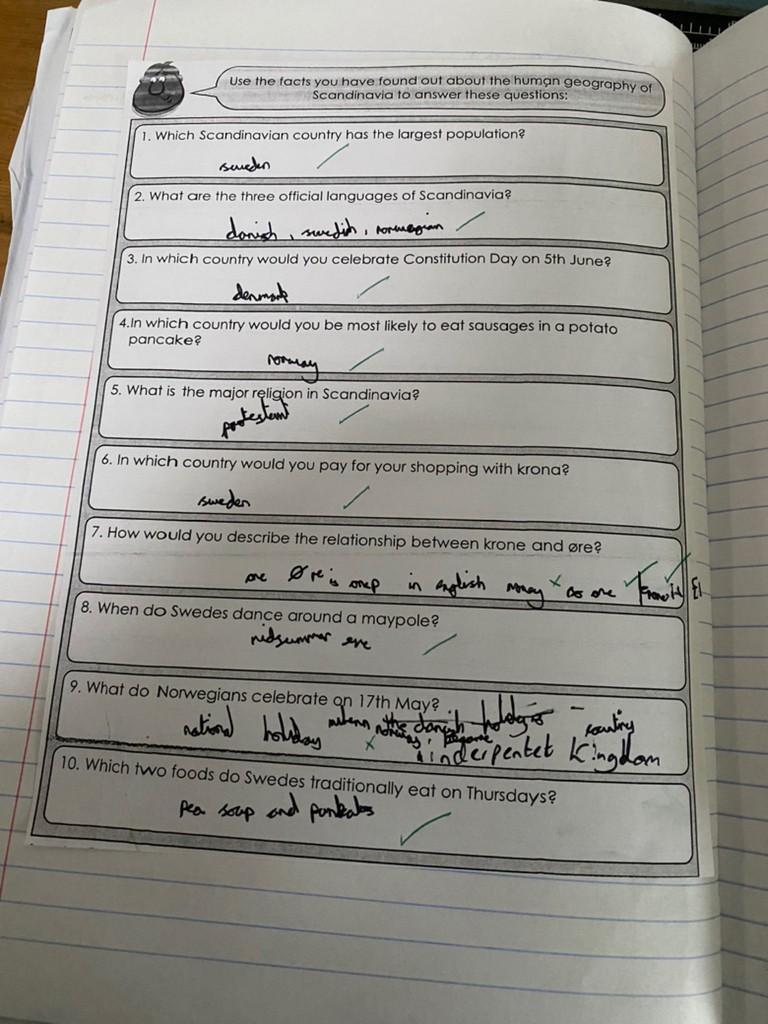 Use the facts you have found out about the human geography of
Scandinavia to answer these questions:
1. Which Scandinavian country has the largest population?
sweden
2. What are the three official languages of Scandinavia?
danish, swedish, norwegian
3. In which country would you celebrate Constitution Day on 5th June?
denmark
4.In which country would you be most likely to eat sausages in a potato
pancake?
norway
5. What is the major religion in Scandinavia?
protestant
6. In which country would you pay for your shopping with krona?
sweden
7. How would you describe the relationship between krone and øre?
one Øre is one p in english money as one £1
8. When do Swedes dance around a maypole?
midsummer eve
9. What do Norwegians celebrate on 17th May?
the danish holdays
national holiday when norway became country
inderpentet kingdom
10. Which two foods do Swedes traditionally eat on Thursdays?
pea soup and pankakes